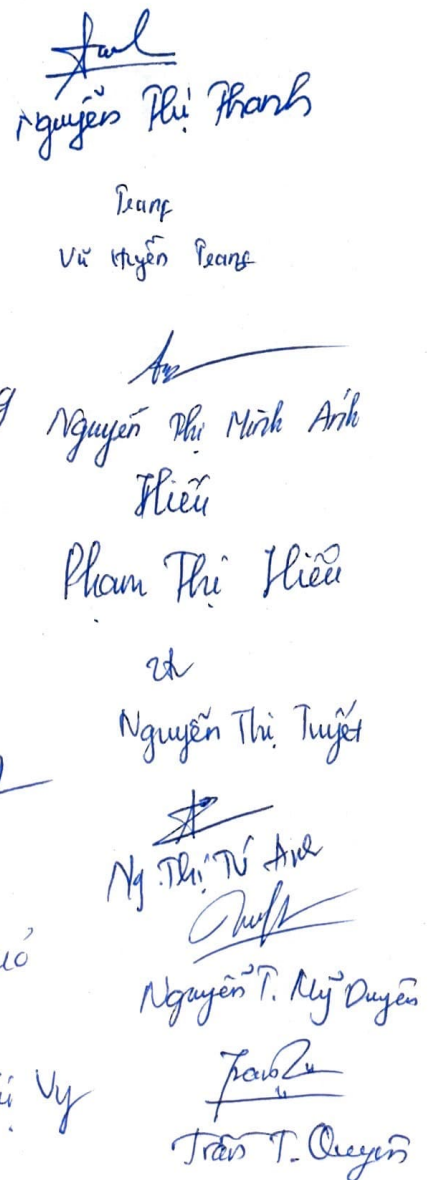 Nguyễn Thị Thanh
Trang
Vũ Huyền Trang
Nguyễn Thị Minh Anh
Hiếu
Phạm Thị Hiếu
Nguyễn Thị Tuyết
Ng. Thị Tú Anh
Nguyễn T. Mỹ Duyên
Vy
Trần T. Quyên